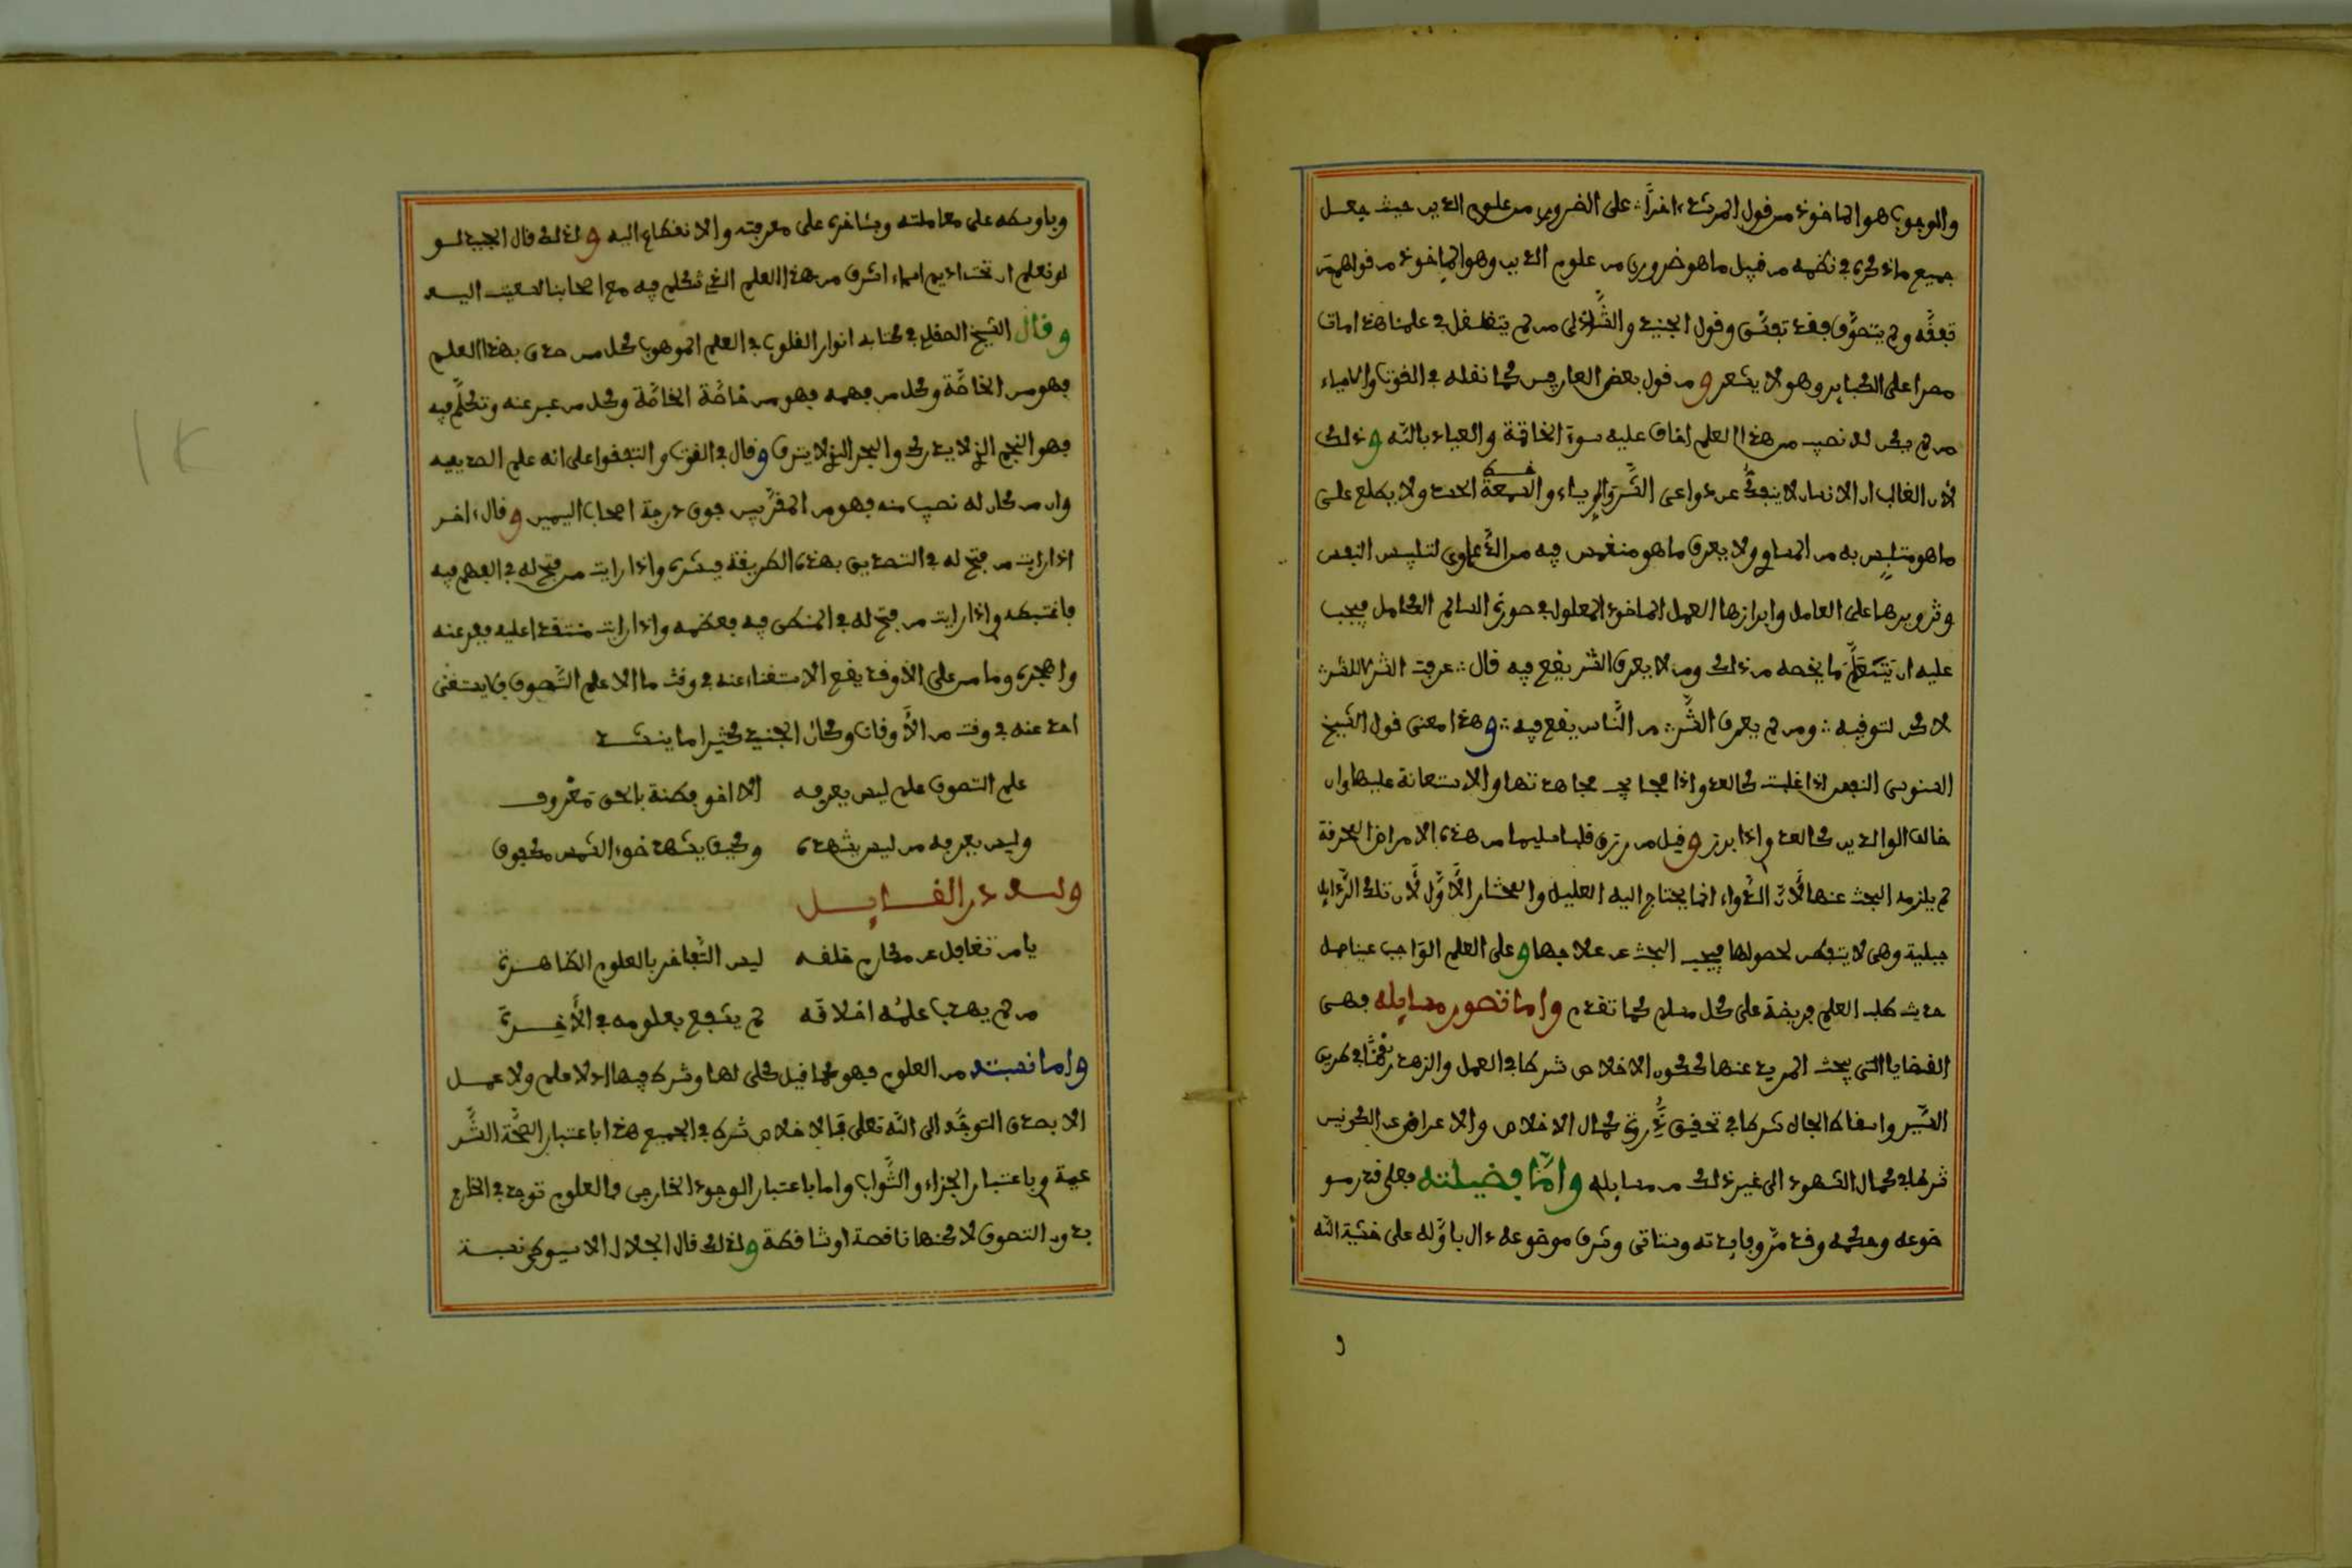 والوجوب هو الماخوذ من قول المرشد اخرا على الضروري من علوم الدين حيث جعل
جميع ما ذكره في نظمه من قبيل ما هو ضروري من علوم الدين وهو الماخوذ من قولهم من
تفقّه ولم يتصوّف فقد تفسّق وقول الجنيد والشّاذلي من لم يتغلغل في علمنا هذا مات
مصرا على الكبائر وهو لا يشعر ومن قول بعض العارفين كما نقله في القوت والاحياء
من لم يكن له نصيب من هذا العلم اخاف عليه سوء الخاتمة والعياذ بالله وذلك
لان الغالب ان الانسان لا ينفكّ عن دواعي الشّر والرياء والسمعة الحسد ولا يطلع على
ما هو متلبس به من المساوي ولا يعرف ما هو منغمس فيه من الدّعاوي لتلبيس النفس
وتزويرها على العامل وابرازها العمل الماخوذ المعلول في صورة السالم الكامل فيجب
عليه ان يتعلّم ما يخصه من ذلك ومن لا يعرف الشر يقع فيه قال عرفت الشر لا للشر
لاكن لتوقيه ومن لم يعرف الشّر من النّاس يقع فيه وهذا معنى قول الشيخ
السنوسي النفس اذا غلبت كالعدو اذا فجا يجب مجاهدتها والاستعانة عليها وان
خالف الوالدين كالعدو اذا برز وقيل من رزق قلبا سليما من هذه الامراض المحرمة
لم يلزمه البحث عنها لانّ الدّواء انما يحتاج اليه العليل والمختار الاوّل لان تلك الرّذايل
جبلية وهي لا يتفطن لحصولها فيجب البحث عن علاجها وعلى العلم الواجب عينا حمل
حديث طلب العلم فريضة على كل مسلم كما تقدم واما تصور مسايله فهي
القضايا التي يبحث المريد عنها ككون الاخلاص شرطا في العمل والزهد ركنا في طريق
السّير واسقاط الجاه شرطا في تحقيق كمال الاخلاص والاعراض عن الكونين
شرطا في كمال الشهود الى غير ذلك من مسايله وامّا فضيلته فعلى قدر مو
ضوعه وحكمه وقد مرّ وفايدته وستاتي وشرف موضوعه دال باوّله على خشية الله
و
وباوسطه على معاملته وبئاخره على معرفته والانقطاع اليه ولذلك قال الجنيد لو
لو نعلم ان تحت اديم السماء اشرف من هذا العلم الذي نتكلم فيه مع اصحابنا لسعيت اليه
وقال الشيخ الصقلي في كتابه انوار القلوب في العلم الموهوب كل من صدق بهذا العلم
فهو من الخاصّة وكل من فهمه فهو من خاصّة الخاصّة وكل من عبر عنه وتكلّم فيه
فهو النجم الذي لا يدرك والبحر الذي لا ينزف وقال في القوت واتفقوا على انه علم الصديقين
وان من كان له نصيب منه فهو من المقرّبين فوق درجة اصحاب اليمين وقال ءاخر
اذا رايت من فتح له في التصديق بهذه الطريقة فبشره واذا رايت من فتح له في الفهم فيه
فاغتبطه واذا رايت من فتح له في المنطق فيه فعظمه واذا رايت منتقدا عليه ففر عنه
واهجره وما من علم الا وقد يقع الاستغناء عنه في وقت ما الا علم التّصوف فلا يستغنى
احد عنه في وقت من الأوقات وكان الجنيد كثيرا ما ينشد
علم التصوف علم ليس يعرفه الا اخو فطنة بالحق معروف
وليس يعرفه من ليس يشهده وكيف يشهد ضوء الشمس مكفوف
ولله در القايل
يا من تغافل عن مكارم خلقه ليس التّفاخر بالعلوم الظاهرة
من لم يهذب علمُه اخلاقه لم ينتفع بعلومه في الأخرة
واما نسبته من العلوم فهو كما قيل كلي لها وشرط فيها اذ لا علم ولا عمل
الا بصدق التوجّه الى الله تعلى فالاخلاص شرط في الجميع هذا باعتبار الصّحّة الشّر
عية وباعتبار الجزاء والثّواب واما باعتبار الوجود الخارجي فالعلوم توجد في الخارج
بدون التصوف لاكنها ناقصة او ساقطة ولذلك قال الجلال الاسيوطي نسبة